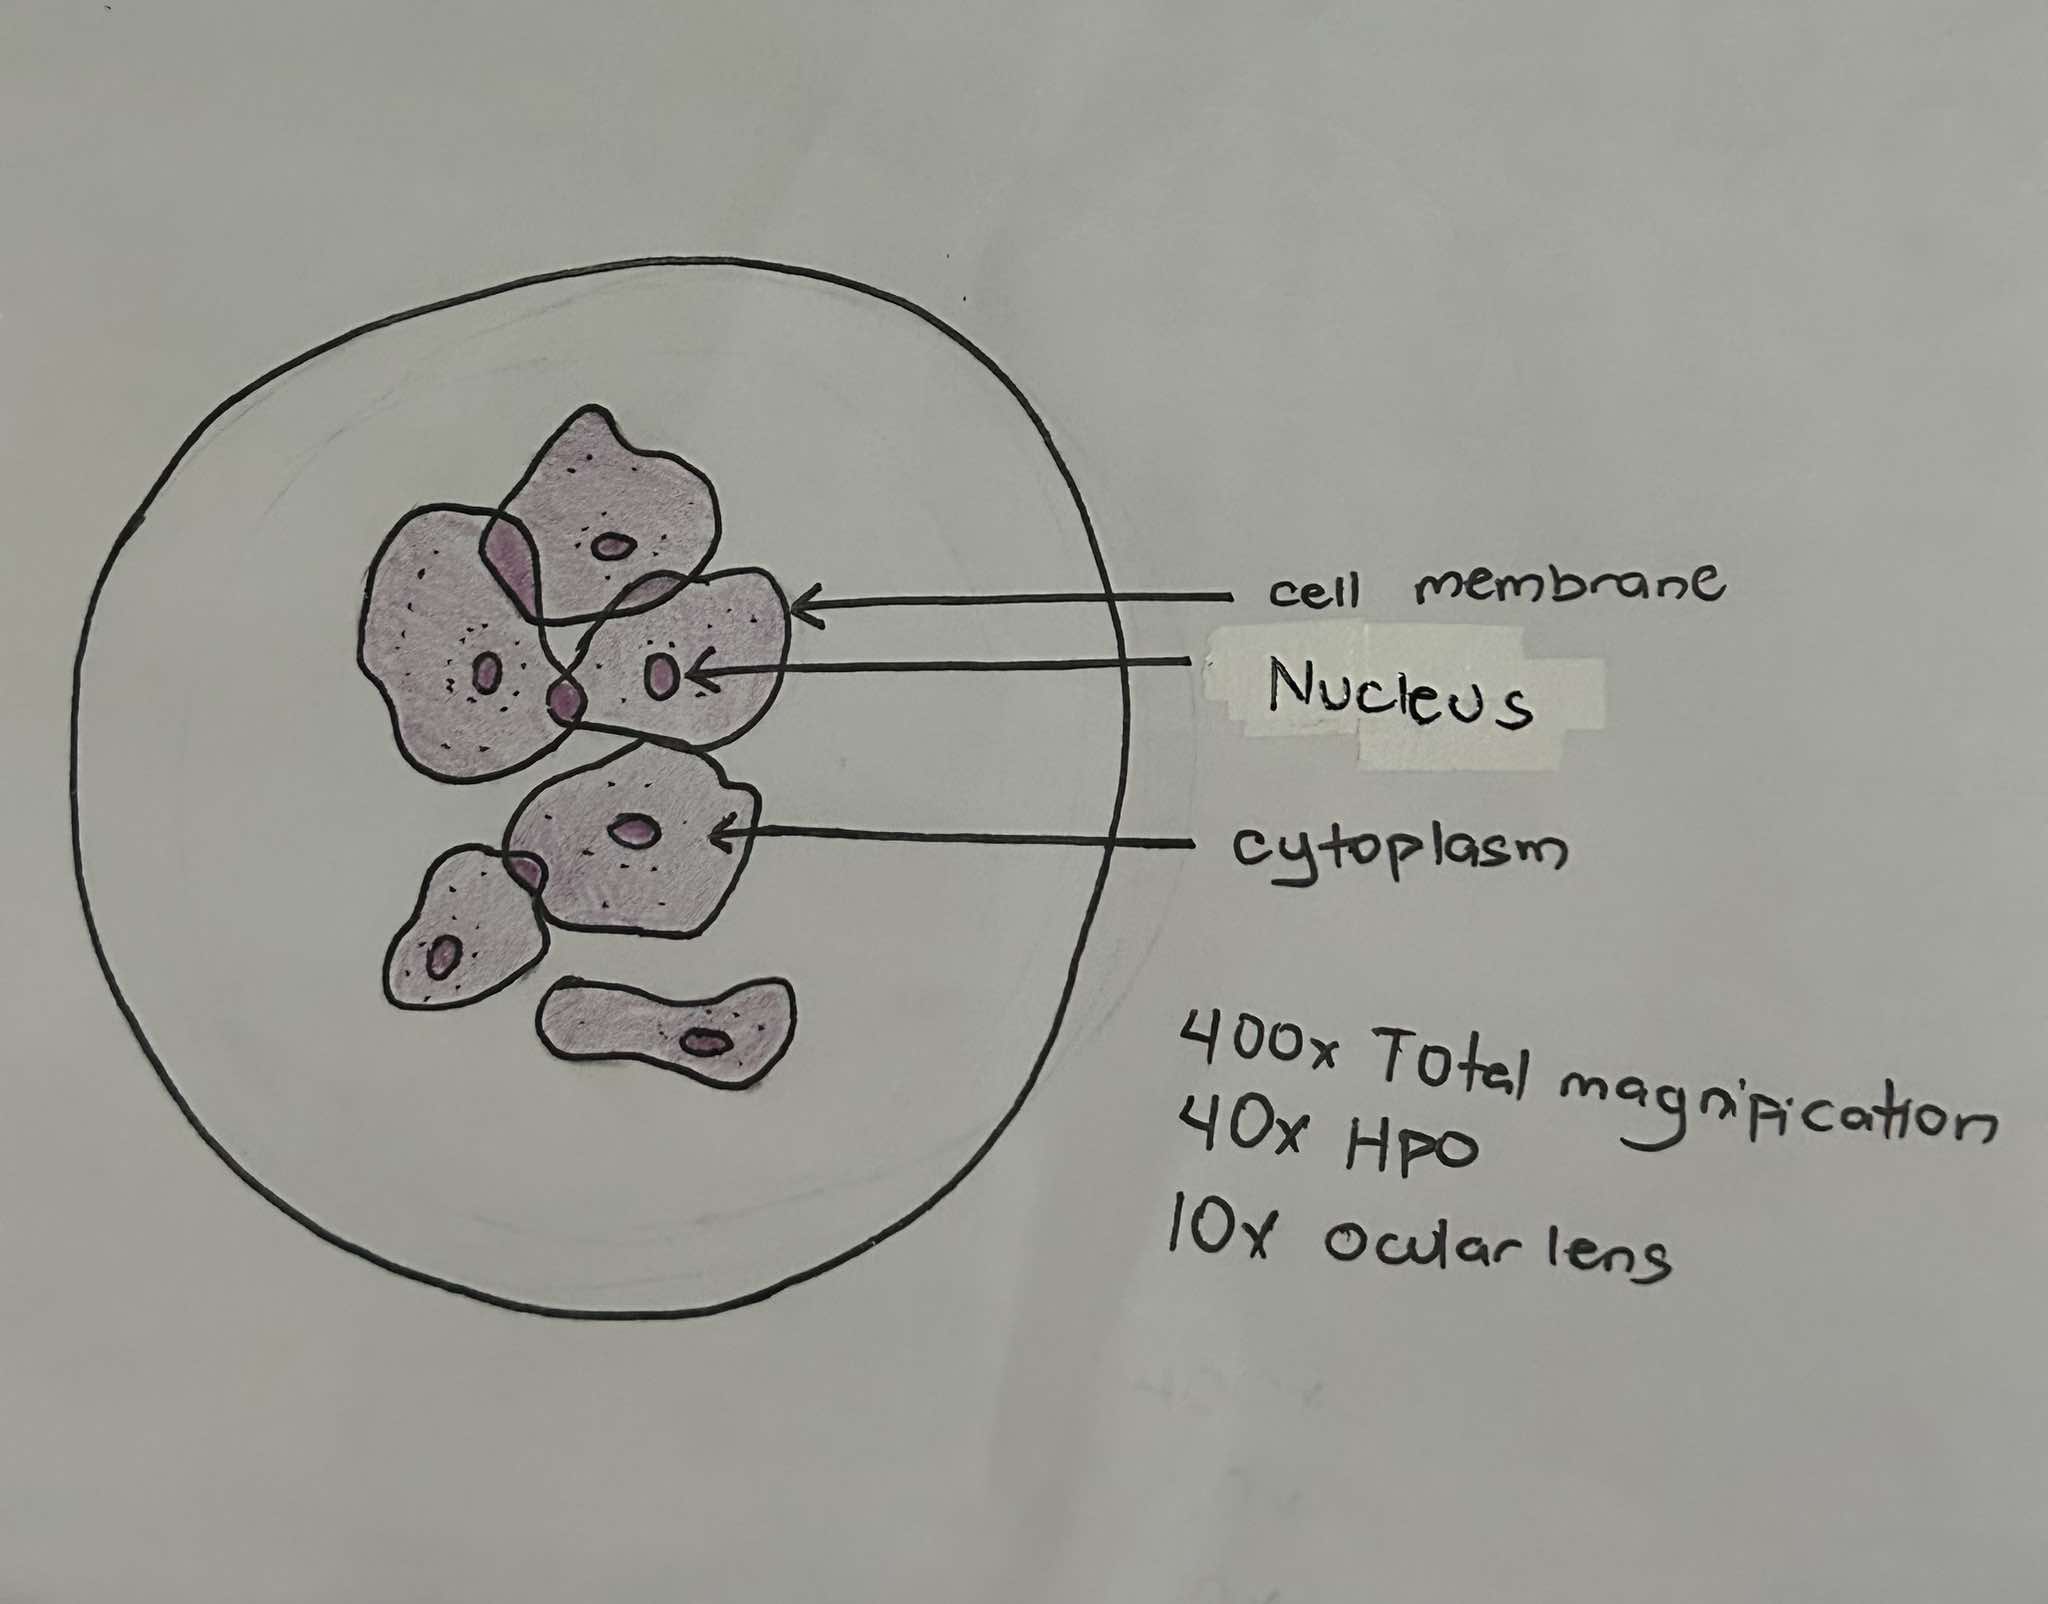 cell membrane
Nucleus
cytoplasm
400x Total magnification
40x HPO
10x ocular lens